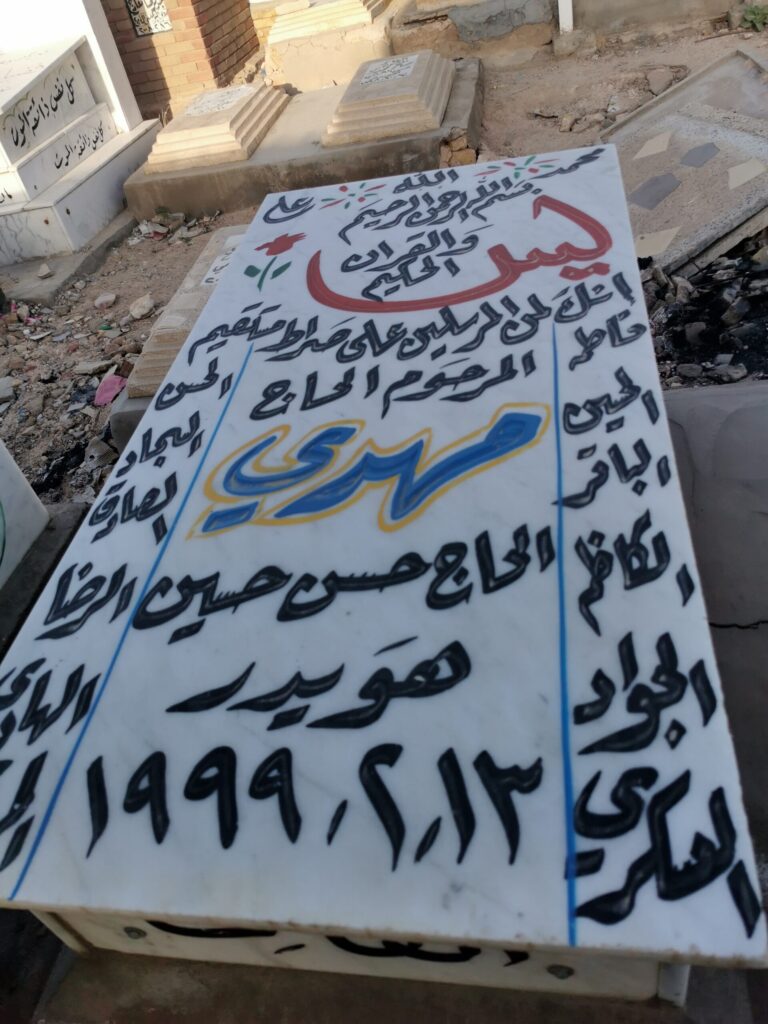 الله
محمد
علي
بسم الله الرحمن الرحيم
يس
والقران
الحكيم
إنك لمن المرسلين على صراط مستقيم
المرحوم الحاج
مهدي
الحاج حسن حسين
هويدر
١٩٩٩،٢،١٣
فاطمة
الحسين
الباقر
الكاظم
الجواد
العسكري
الحسن
السجاد
الصادق
الرضا
الهادي
كل نفس ذائقة الموت
كل نفس ذائقة الموت